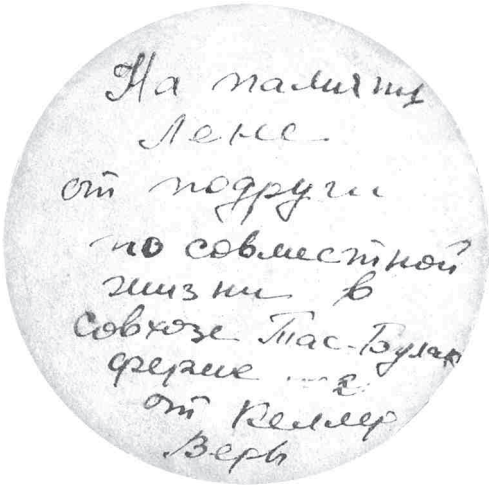 На память
Лене
от подруги
по совместной
жизни в
совхозе Тас-Булак
ферме 2
от Келлер
Веры